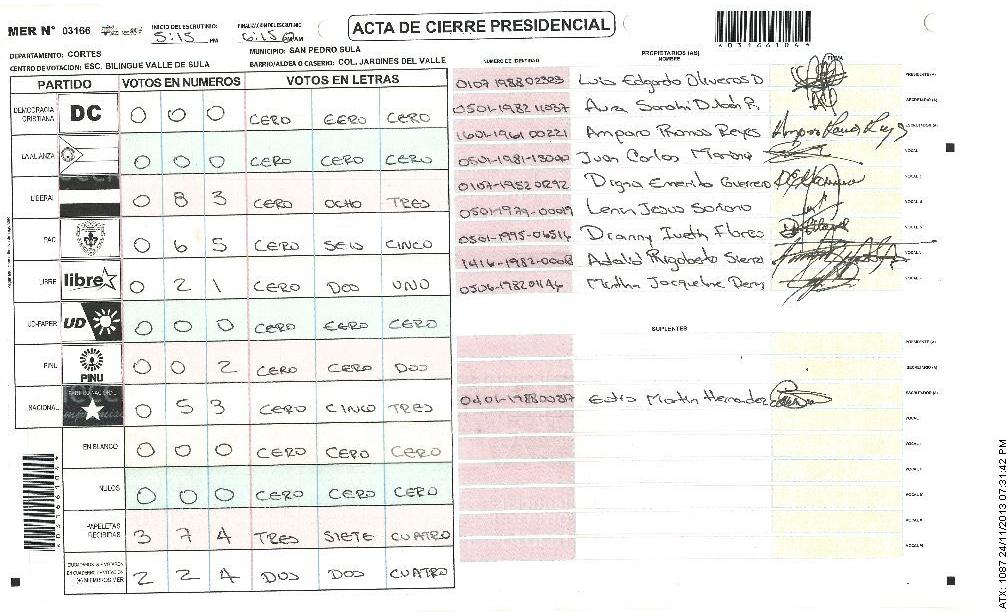 ACTA DE CIERRE PRESIDENCIAL
MER N° 03166
INICIO DEL ESCRUTINIO:
5:15 PM
FINALIZACION DEL ESCRUTINIO:
6:15
DEPARTAMENTO: CORTES
MUNICIPIO: SAN PEDRO SULA
CENTRO DE VOTACION: ESC. BILINGUE VALLE DE SULA
BARRIO/ALDEA O CASERIO: COL. JARDINES DEL VALLE
PARTIDO VOTOS EN NUMEROS VOTOS EN LETRAS
DEMOCRACIA CRISTIANA DC 0 0 0 CERO CERO CERO
LA ALIANZA 0 0 0 CERO CERO CERO
LIBERAL 0 8 3 CERO OCHO TRES
PAC 0 6 5 CERO SEIS CINCO
LIBRE libre 0 2 1 CERO DOS UNO
UD-FAPER UD 0 0 0 CERO CERO CERO
PINU PINU 0 0 2 CERO CERO DOS
NACIONAL 0 5 3 CERO CINCO TRES
EN BLANCO 0 0 0 CERO CERO CERO
NULOS 0 0 0 CERO CERO CERO
PAPELETAS RECIBIDAS 3 7 4 TRES SIETE CUATRO
(+) MIEMBROS MER 2 2 4 DOS DOS CUATRO
PROPIETARIOS (AS)
NUMERO DE IDENTIDAD NOMBRE FIRMA
0107 1988 02323 Luis Edgardo Oliveros D PRESIDENTE (A)
0501-1982 11087 Aura Sarahi SECRETARIO (A)
1601-1961 00221 Amparo Reyes ESCRUTADOR (A)
0501-1981-13040 Juan Carlos VOCAL I
0107-1952 0292 Digna Emerita Guerrero VOCAL II
0501-1979-00019 Lenin Jesus Soriano VOCAL III
0501-1995-06514 Dianny Iveth Flores VOCAL
1416-1982-0008 Adalid Rigoberto VOCAL
0506-1982 Jacqueline VOCAL
SUPLENTES
PRESIDENTE (A)
SECRETARIO (A)
0401-1988 Martin Hernandez ESCRUTADOR (A)
VOCAL I
VOCAL II
VOCAL III
VOCAL IV
VOCAL V
VOCAL VI
ATX: 1087 24/11/2013 07:31:42 PM